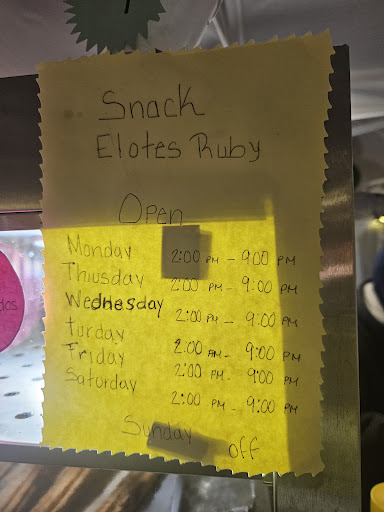 Snack
Elotes Ruby
Open
Monday 2:00 PM - 9:00 PM
Thiusday 2:00 PM - 9:00 PM
Wednesday 2:00 PM - 9:00 PM
Turday 2:00 PM - 9:00 PM
Friday 2:00 PM - 9:00 PM
Saturday 2:00 PM - 9:00 PM
Sunday off